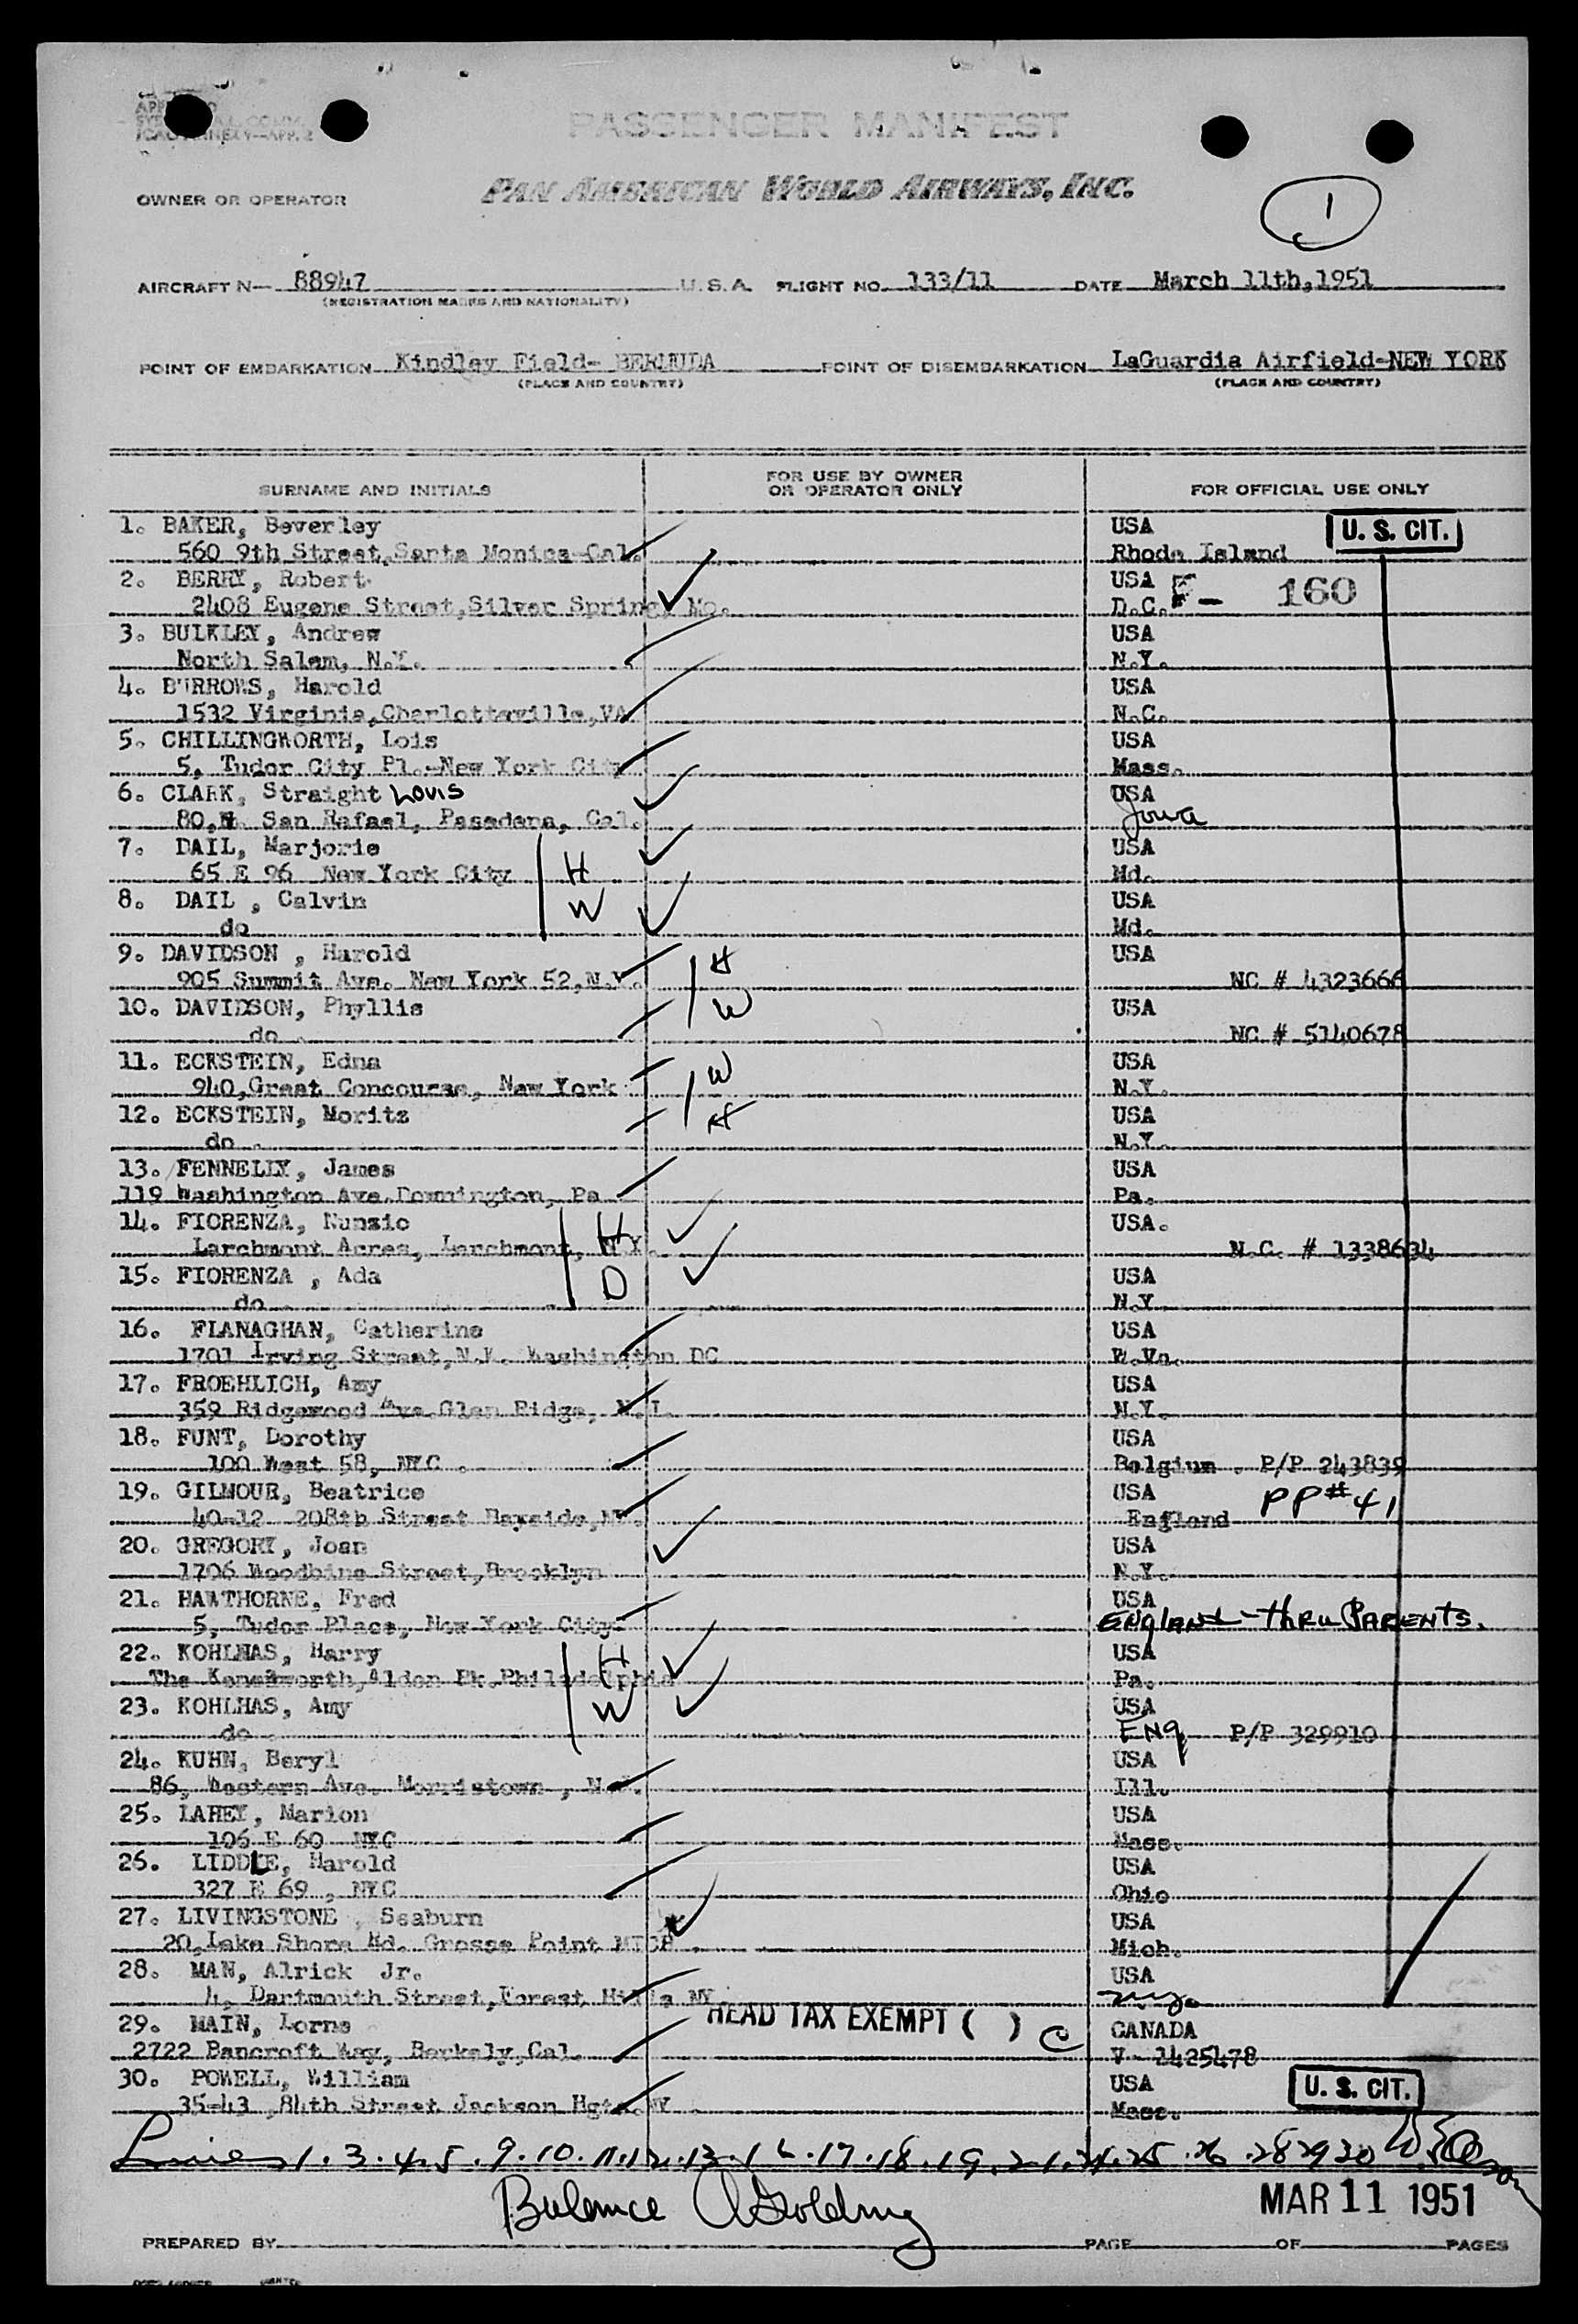 PASSENGER MANIFEST
OWNER OR OPERATOR PAN AMERICAN WORLD AIRWAYS, INC.
1
AIRCRAFT N— 88947 U.S.A. FLIGHT NO. 133/11 DATE March 11th,1951
(REGISTRATION MARKS AND NATIONALITY)
POINT OF EMBARKATION Kindley Field- BERMUDA POINT OF DISEMBARKATION LaGuardia Airfield-NEW YORK
(PLACE AND COUNTRY) (PLACE AND COUNTRY)
SURNAME AND INITIALS FOR USE BY OWNER OR OPERATOR ONLY FOR OFFICIAL USE ONLY
1. BAKER, Beverley USA U. S. CIT.
560 9th Street,Santa Monica-Cal. Rhode Island
2. BERRY, Robert USA 160
2408 Eugene Street,Silver Spring, Mo. D.C.
3. BULKLEY, Andrew USA
North Salem, N.Y. N.Y.
4. BURROWS, Harold USA
1532 Virginia,Charlottsville,VA N.C.
5. CHILLINGWORTH, Lois USA
5, Tudor City Pl.-New York City Mass.
6. CLARK, Straight Louis USA
80,N. San Rafael, Pasadena, Cal. Iowa
7. DAIL, Marjorie USA
65 E 96 New York City H Md.
8. DAIL , Calvin W USA
do Md.
9. DAVIDSON , Harold H USA
905 Summit Ave. New York 52,N.Y. NC # 4323666
10. DAVIDSON, Phyllis W USA
do NC # 5140678
11. ECKSTEIN, Edna W USA
940,Great Concourse, New York N.Y.
12. ECKSTEIN, Moritz H USA
do N.Y.
13. FENNELLY, James USA
119 Washington Ave.Downington, Pa Pa.
14. FIORENZA, Nunzio H USA.
Larchmont Acres, Larchmont, N.Y. N.C. # 1338634
15. FIORENZA , Ada D USA
do N.Y.
16. FLANAGHAN, Catherine USA
1701 Irving Street,N.W. Washington DC W.Va.
17. FROEHLICH, Amy USA
359 Ridgewood Ave.Glen Ridge, N.J. N.Y.
18. FUNT, Dorothy USA
100 West 58, NYC . Belgium . P/P 243839
19. GILMOUR, Beatrice USA PP# 41
40-12 208th Street Bayside,NY. England
20. GREGORY, Joan USA
1706 Woodbine Street,Brooklyn N.Y.
21. HAWTHORNE, Fred USA
5, Tudor Place, New York City ENGLAND - THRU PARENTS.
22. KOHLHAS, Harry H USA
The Kenelworth,Alden Pk.Philadelphia Pa.
23. KOHLHAS, Amy W USA
do ENg P/P 329910
24. KUHN, Beryl USA
86, Western Ave. Morristown , N.J. Ill.
25. LAHEY, Marion USA
106 E 60 NYC Mass.
26. LIDDLE, Harold USA
327 E 69 , NYC Ohio
27. LIVINGSTONE , Seaburn USA
20,Lake Shore Rd. Grosse Point MICH . Mich.
28. MAN, Alrick Jr. USA
4, Dartmouth Street,Forest Hills NY N.Y.
HEAD TAX EXEMPT ( ) C
29. MAIN, Lorne CANADA
2722 Bancroft Way, Berkely,Cal. V- 1425478
30. POWELL, William USA U. S. CIT.
35-43 ,84th Street Jackson Hgts.NY . Mass.
Lines 1.3.4.5.9.10.11.12.13.16.17.18.19.21.24.25.26.28 29 30
Balance Golding MAR 11 1951
PREPARED BY PAGE OF PAGES